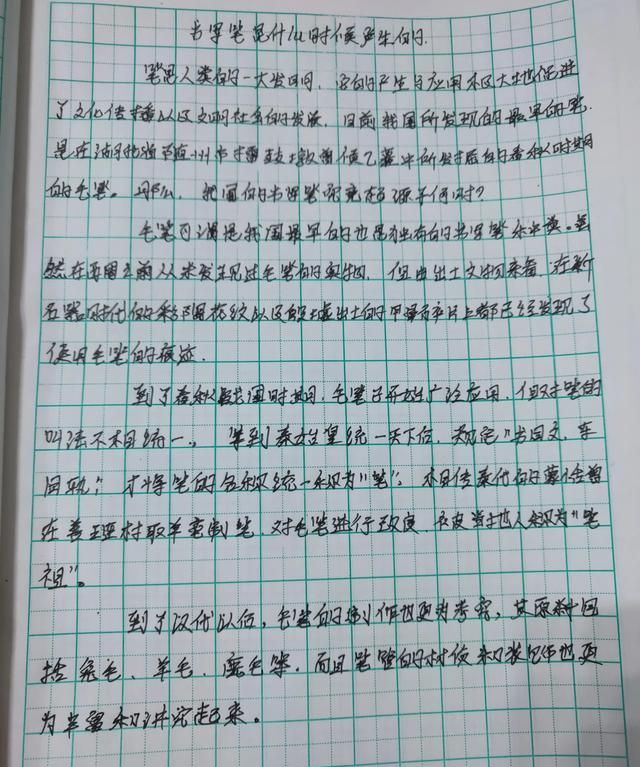 书写笔是什么时候产生的
笔是人类的一大发明,它的产生与应用极大地促进
了文化传播以及文明社会的发展。目前我国所发现的最早的笔,
是在湖北省随州市擂鼓墩曾侯乙墓中所发启的春秋时期
的毛笔。那么,我国的书写笔究竟起源于何时?
毛笔可谓是我国最早的也是独有的书写笔
然在再国之前从未发现过毛笔的实物,但由出土文物来看,在新
石器时代的彩陶花纹以及殷墟出土的甲骨碎片上都已经发现了
使用毛笔的痕迹.
到了春秋战国时期,毛笔已开始广泛应用,但对笔的
叫法不相统一,等到秦始皇统一天下后,规定"书同文,车
同轨;才将笔的名称统一称为"笔"。相传秦代的蒙恬曾
在善琏村取羊毫制笔,对毛笔进行改良,被当地人称为"笔
祖"。
到了汉代以后,毛笔的制作也更为考究,其原料包
括兔毛、羊毛、鹿毛等,而且笔管的材质和装饰也更
为丰富和讲究起来。